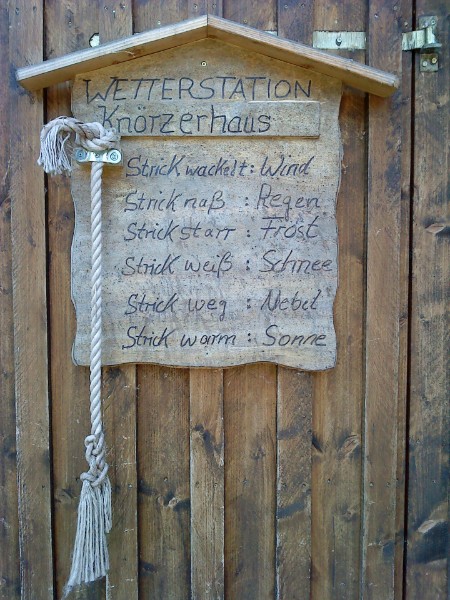 WETTERSTATION
Knörzerhaus
Strick wackelt: Wind
Strick naß : Regen
Strick starr : Frost
Strick weiß : Schnee
Strick weg : Nebel
Strick warm : Sonne